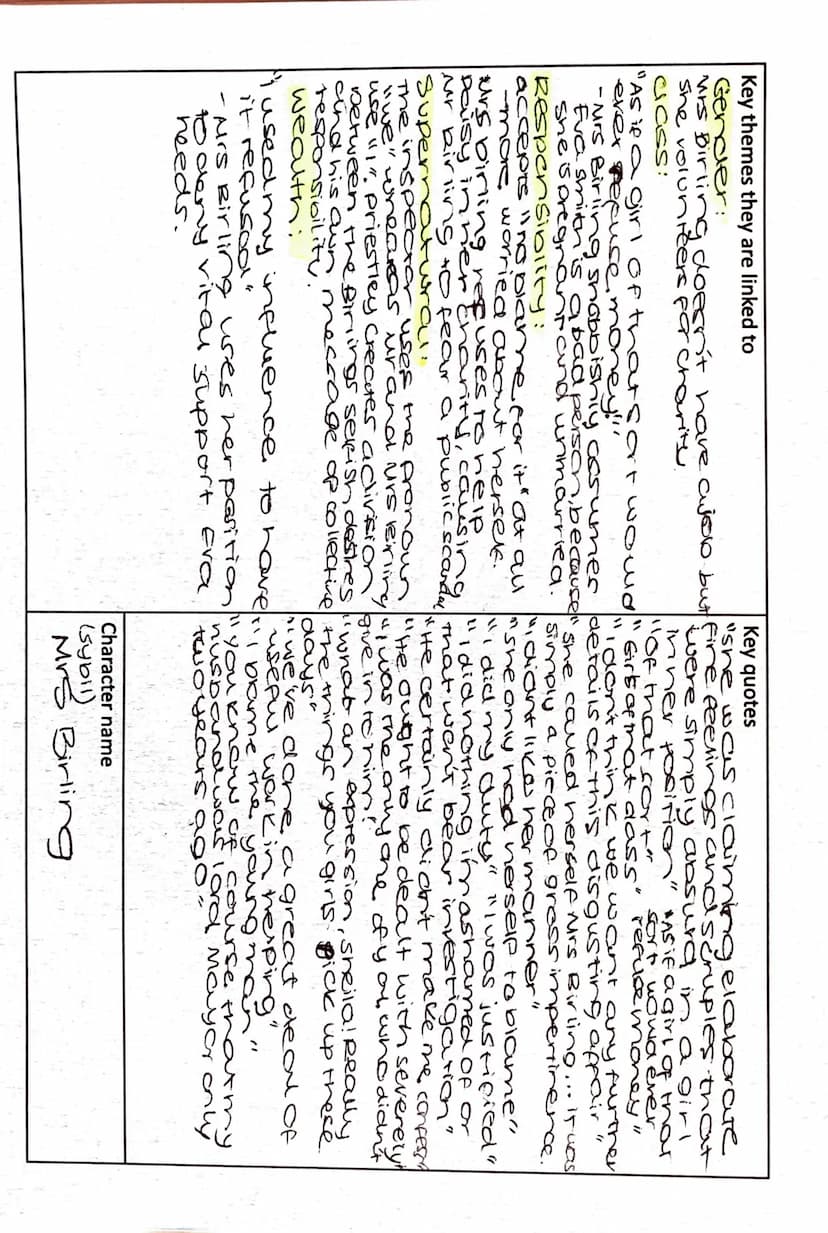 Key themes they are linked to
Gender:
Mrs Birling doesn't have a job but
she volunteers for charity.
Class:
"As if a girl of that sort would
ever refuse money!"
- Mrs Birling snobbishly assumes
Eva Smith is a bad person, because
she is pregnant and unmarried.
Responsibility:
accepts "no blame for it" at all
- more worried about herself.
Mrs Birling refuses to help
Daisy in her charity, causing
Mr Birling to fear a public scandal
Supernatural:
The inspector uses the pronoun
"we" whereas Mr and Mrs Birling
use "I". Priestley creates a division
between the Birlings selfish desires
and his own message of collective
responsibility.
Wealth:
"I used my influence to have
it refused"
- Mrs Birling uses her position
to deny vital support Eva
needs.
Key quotes
"she was claiming elaborate
fine feelings and scruples that
were simply absurd in a girl
in her position" "As if a girl of that
"Of that sort" sort would ever
"Girls of that class" refuse money"
"I don't think we want any further
details of this disgusting affair"
"She called herself Mrs Birling... it was
simply a piece of gross impertinence.
"I didn't like her manner"
"She only had herself to blame"
"I did my duty" "I was justified"
"I did nothing im ashamed of or
that won't bear investigation"
"He certainly didn't make me confess"
"He ought to be dealt with severely"
"I was the only one of you who didn't
give in to him"
"What an expression, Sheila! Really
the things you girls pick up these
days"
"We've done a great deal of
useful work in helping"
"I blame the young man"
"You know of course that my
husband was Lord Mayor only
two years ago"
Character name
(Sybil)
Mrs Birling